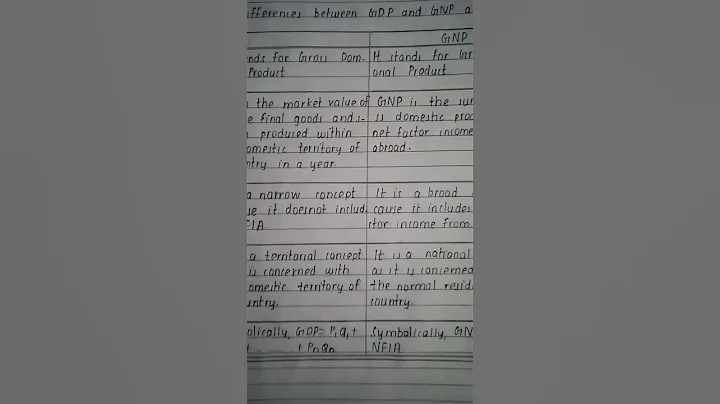 ifferences between GDP and GNP a
GNP
nds for Gross Dom-
Product
It stands for Gr
onal Product
the market value of
e final goods and s-
produced within
omestic territory of
ntry in a year.
GNP is the sum
ss domestic prod
net factor income
abroad.
a narrow concept
se it doesnot includ
FIA.
It is a broad
cause it includes
ctor income from
a territorial concept
is concerned with
omestic territory of
untry.
It is a national
as it is concerned
the normal resid
country.
olically, GDP= P₁Q₁+
+ PnQn
Symbolically, GN
NFIA